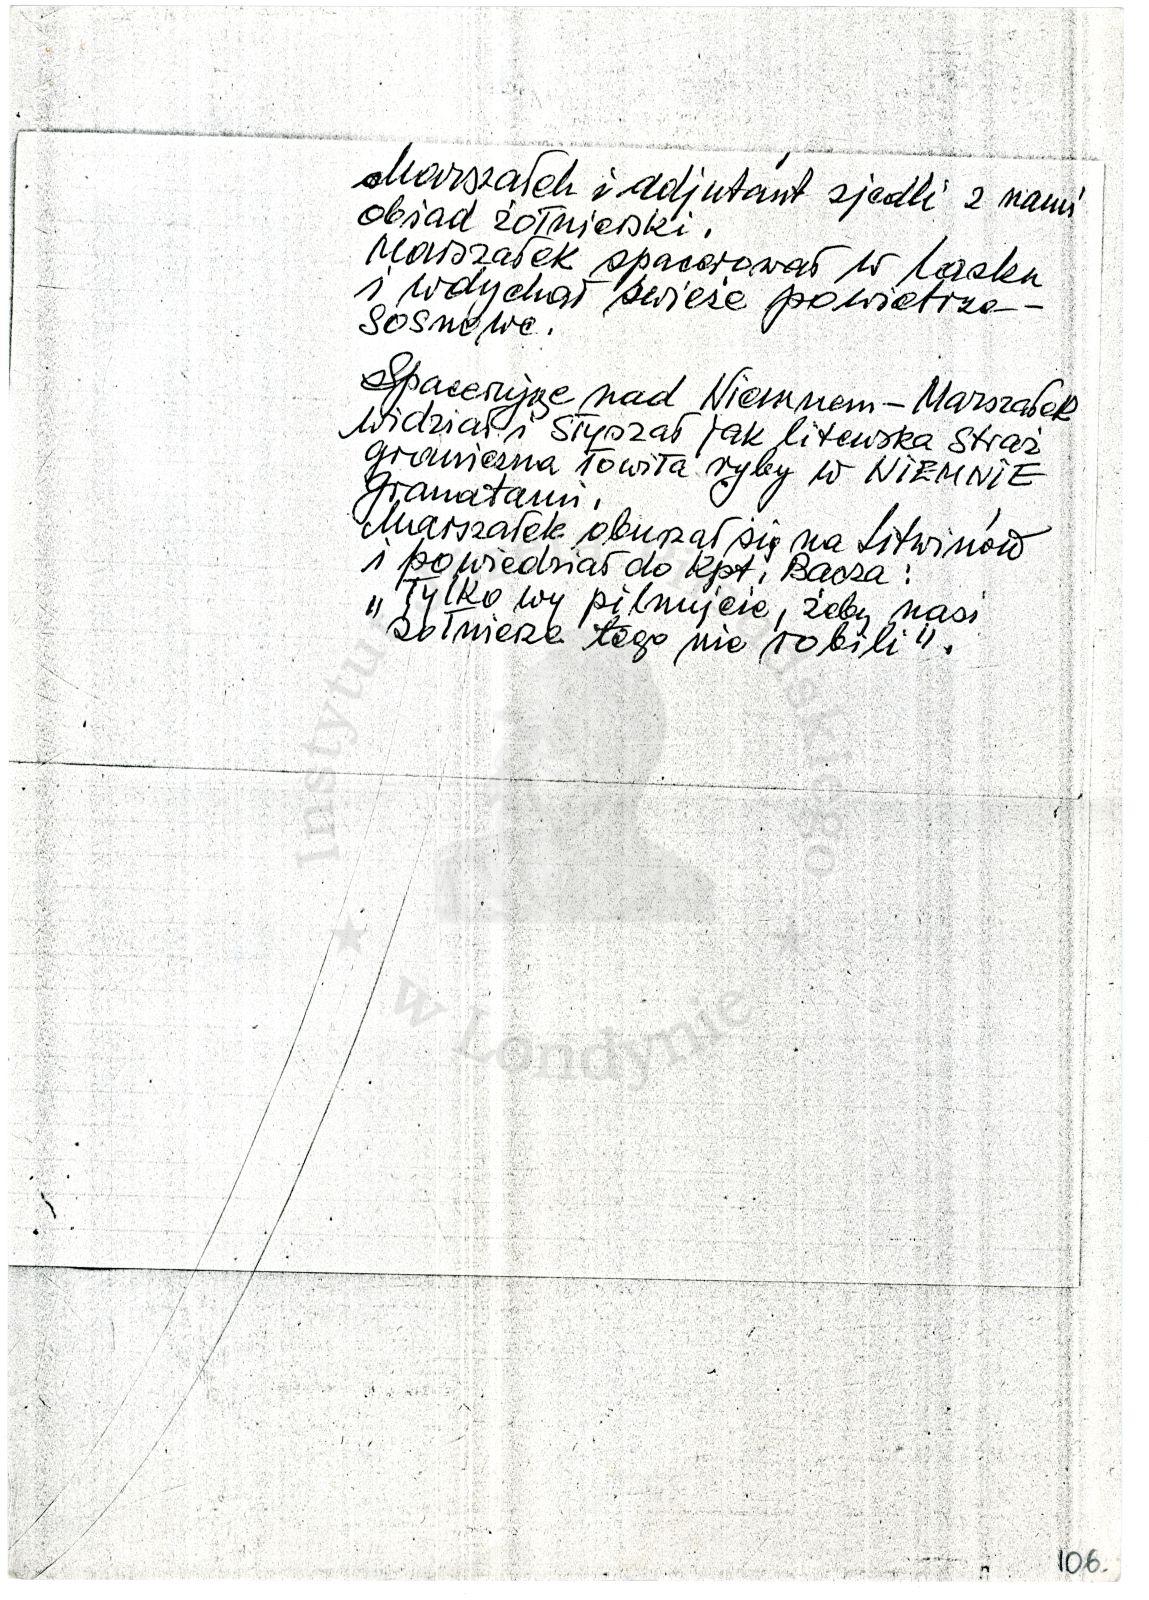 Marszałek i adjutant zjedli z nami
obiad żołnierski.
Marszałek spacerował w lasku
i wdychał świeże powietrze –
sosnowe.
Spacerując nad Niemnem – Marszałek
widział i słyszał jak litewska straż
graniczna łowiła ryby w NIEMNIE
granatami.
Marszałek oburzał się na Litwinów
i powiedział do kpt. Bacza:
"Tylko wy pilnujcie, żeby nasi
żołnierze tego nie robili".
w Londynie
106.